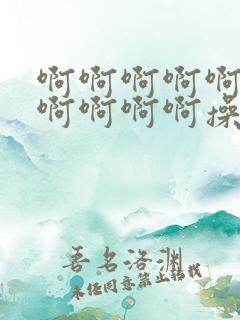 啊啊啊啊啊
啊啊啊啊操
吾名洛渊
未经同意禁止转载